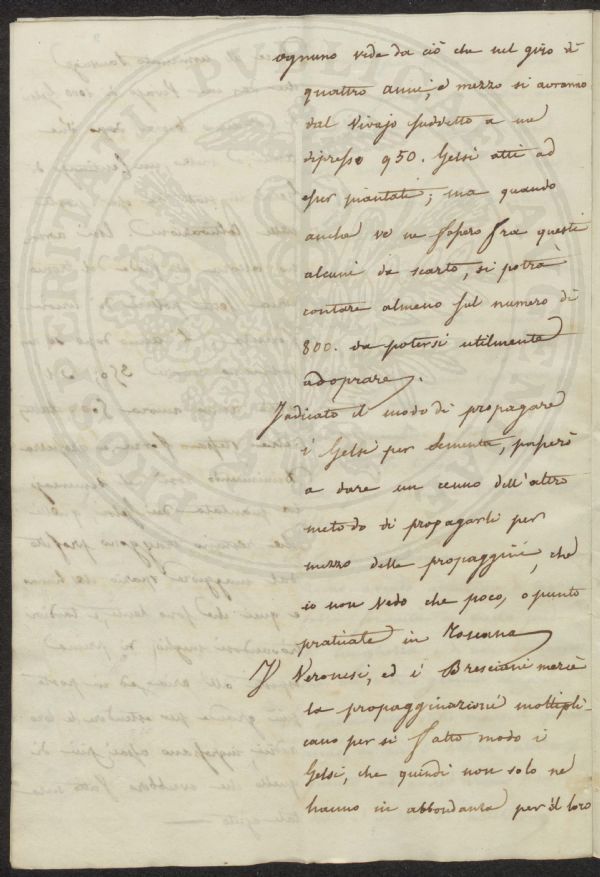 ognuno vede da ciò che nel giro di
quattro anni, e mezzo si avranno
dal Vivajo suddetto a un
dipresso 950. Gelsi atti ad
esser piantati; ma quando
anche ve ne fossero fra questi
alcuni da scarto, si potrà
contare almeno sul numero di
800. da potersi utilmente
adoprare.
Indicato il modo di propagare
i Gelsi per sementa, passerò
a dare un cenno dell'altro
metodo di propagarli per
mezzo delle propaggini, che
io non vedo che poco, o punto
praticate in Toscana
I Veronesi, ed i Bresciani mercè
la propagginazione moltipli-
cano per si fatto modo i
Gelsi, che quindi non solo ne
hanno in abbondanza per il loro